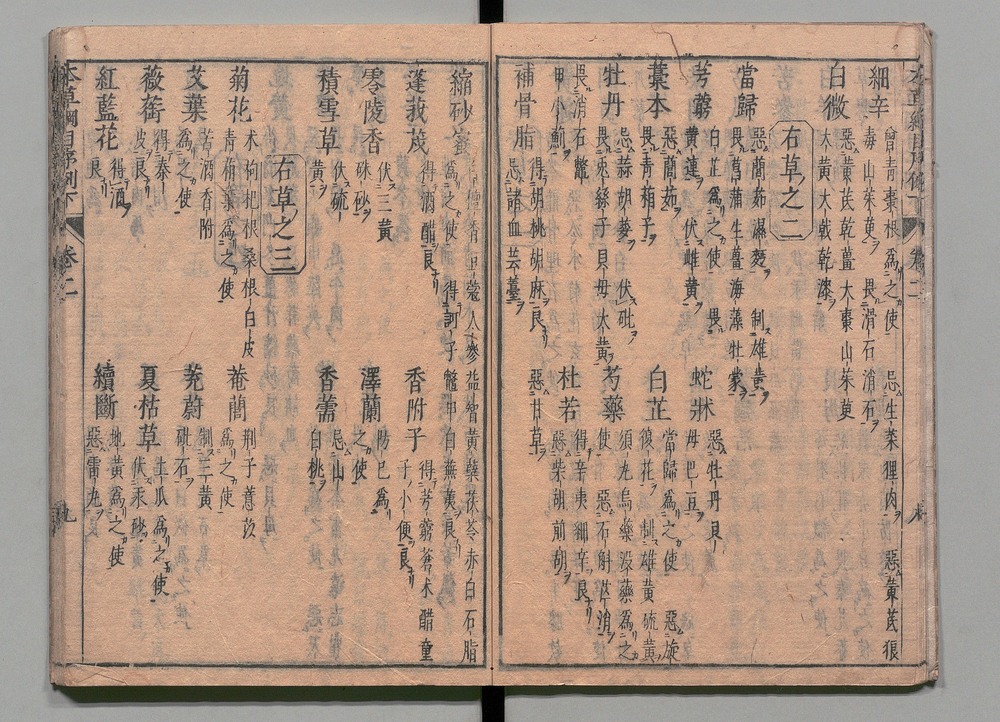 本草綱目序例下 卷二 八
細辛 曾青棗根為之使 忌生菜狸肉 惡黃芪狼
毒山茱萸 畏滑石消石
白微 惡黃芪乾薑大棗山茱萸
大黃大戟乾漆
右草之二
當歸 惡䕡茹濕麪 制雄黃
畏菖蒲生薑海藻牡蒙
芎藭 白芷為之使 畏
黃連 伏雌黃
蛇牀 惡牡丹貝
母巴豆
藁本 惡䕡茹
畏青葙子
白芷 當歸為之使 惡旋
復花 制雄黃硫黃
牡丹 忌蒜胡荽 伏砒
畏菟絲子貝母大黃
芍藥 須丸烏藥沒藥為之
使 惡石斛芒消
畏消石鱉
甲小薊
杜若 得辛夷細辛良
惡柴胡前胡
補骨脂 得胡桃胡麻良 惡甘草
忌諸血芸薹
縮砂蔤 白檀香豆蔻人參益智黃蘗茯苓赤白石脂
為之使 得訶子鱉甲白蕪荑良
蓬莪茂 得酒醋良
香附子 得芎藭蒼朮醋童
子小便良
零陵香 伏三黃
硃砂
澤蘭 防己為
之使
積雪草 伏硫
黃
香薷 忌山
白桃
右草之三
菊花 朮枸杞根桑根白皮
青葙葉為之使
菴䕡 荊子薏苡
為之使
艾葉 苦酒香附
為之使
茺蔚 制三黃
砒石
薇銜 得秦
皮良
夏枯草 土瓜為之使
伏汞砂
紅藍花 得酒
良
續斷 地黃為之使
惡雷丸
本草綱目序例下 卷二 九